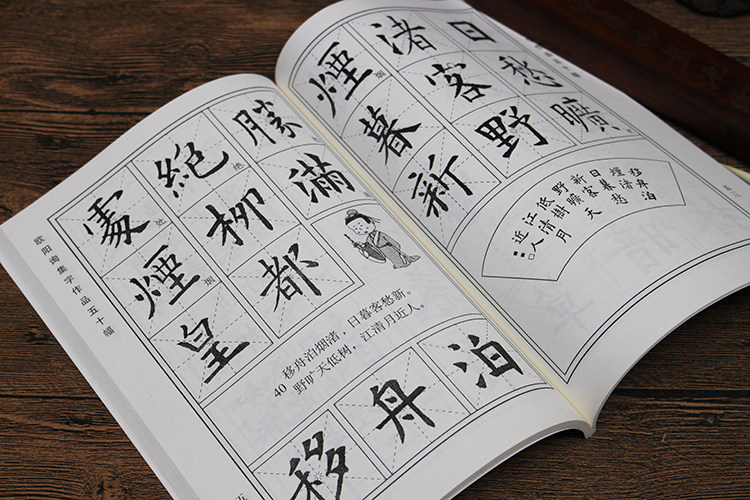 欧阳询集字作品五十幅
處絕勝
处
绝
煙柳滿
烟
皇都
40 移舟泊烟渚,日暮客愁新。
野旷天低树,江清月近人。
移舟泊
煙渚日
烟
暮客愁
新野曠
移舟泊
煙渚
日暮客愁
新
野曠天
低樹
江清月
近人